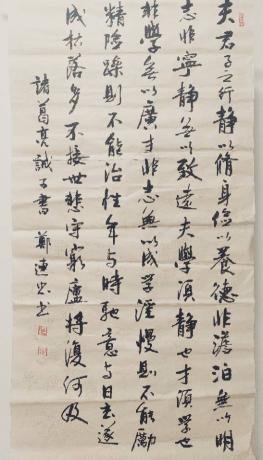 夫君子之行静以脩身儉以養德非澹泊無以明
志非寧静無以致遠夫學須静也才須學也
非學無以廣才非志無以成學淫慢則不能勵
精險躁則不能治性年与時馳意与日去遂
成枯落多不接世悲守窮廬將復何及
諸葛亮誡子書 鄭書